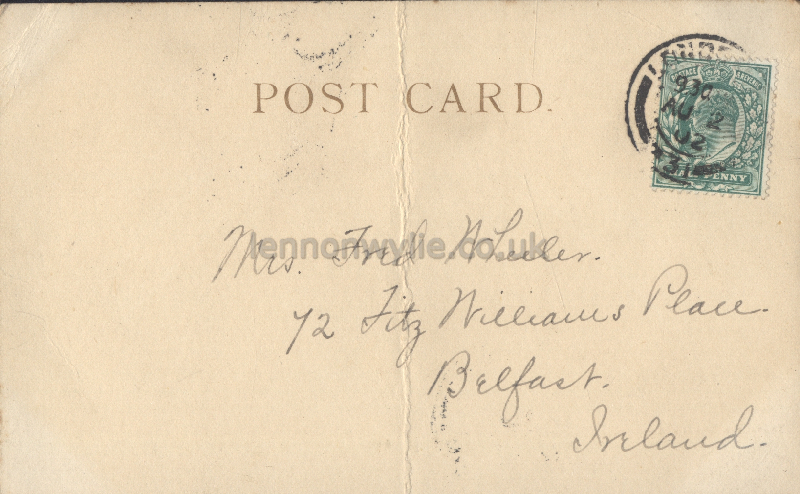 POST CARD.
LONDO
930
AU 2
02
31
POSTAGE REVENUE
HALF PENNY
lennonwylie.co.uk
Mrs. Fred Wheeler.
72 Fitz Williams Place.
Belfast.
Ireland.